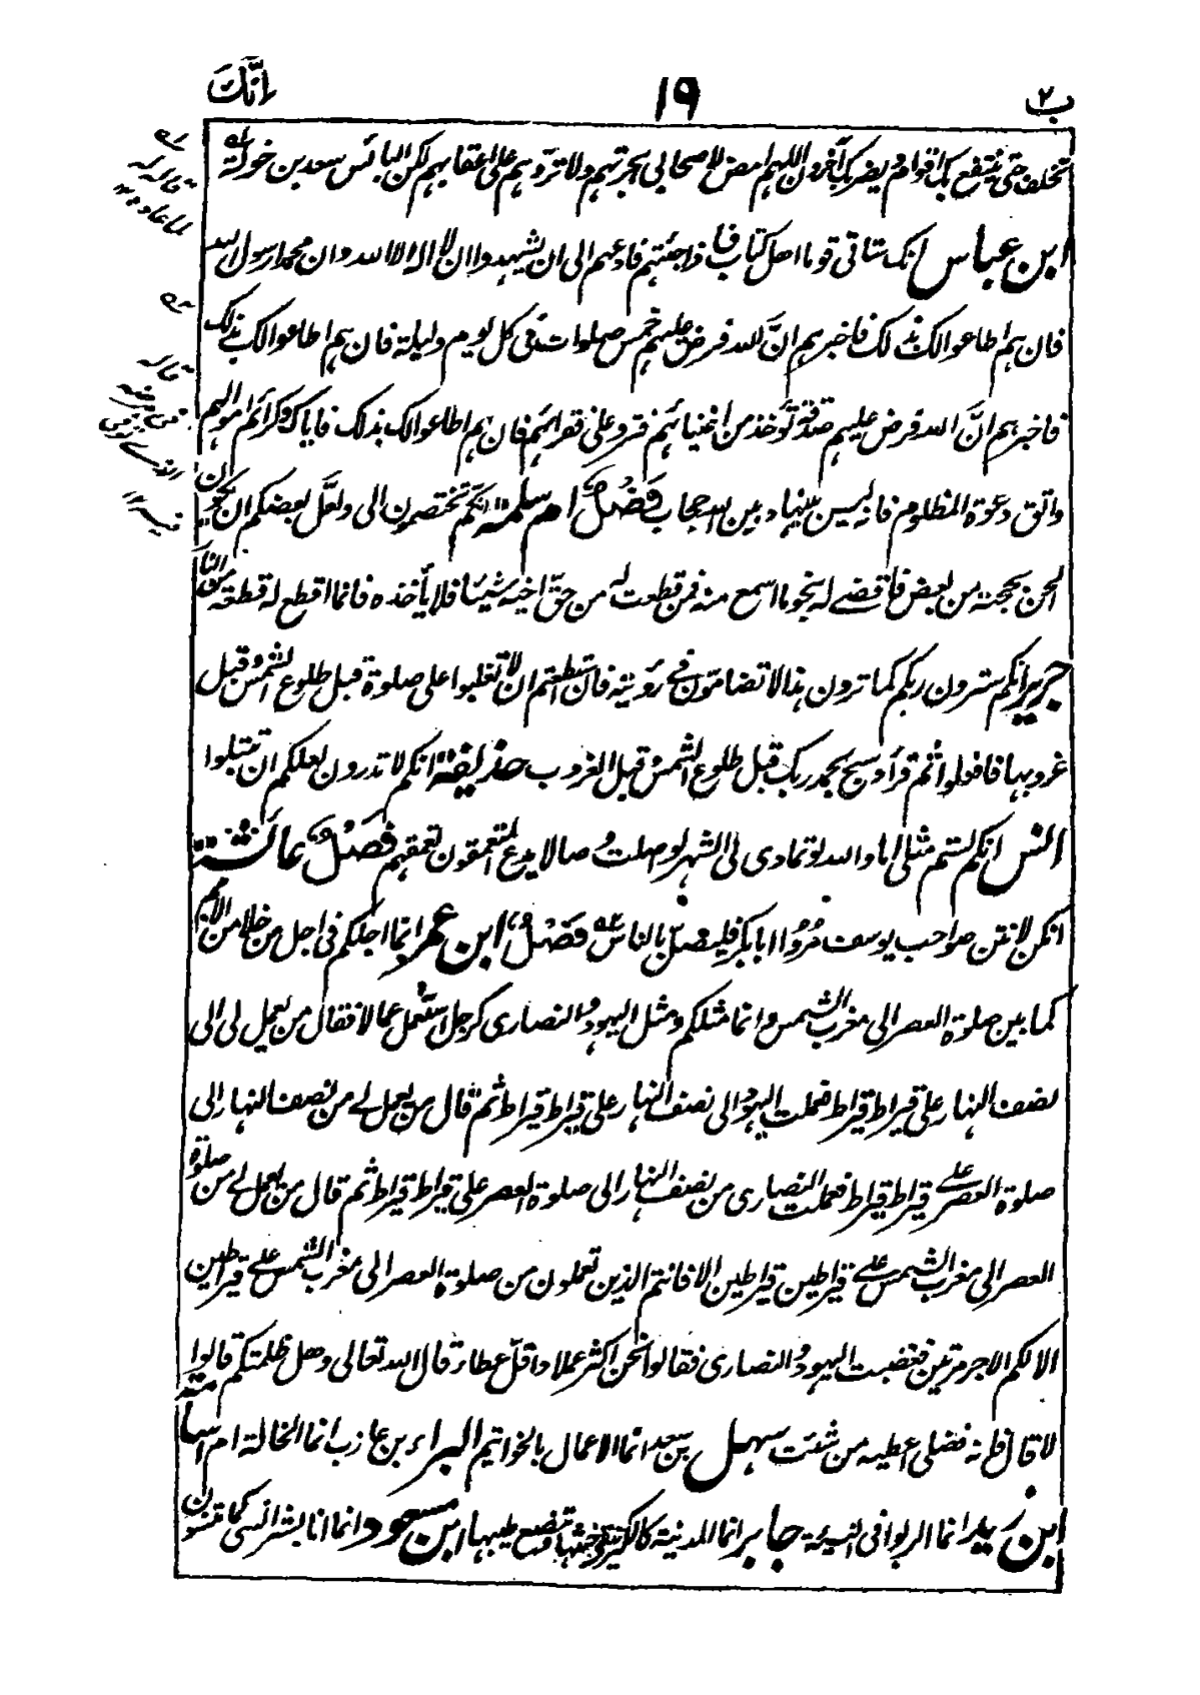 ب٢ ١٩ إنَّكَ
تخلف حتى ينتفع بك اقوام ويضر بك آخرون اللهم امض لاصحابي هجرتهم ولا تردهم على اعقابهم لكن البائس سعد بن خولة
ابن عباس انك ستاتي قوما اهل كتاب فاذا جئتهم فادعهم الى ان يشهدوا ان لا اله الا الله وان محمدا رسول الله
فان هم اطاعوا لك بذلك فاخبرهم انَّ الله فرض عليهم خمس صلوات في كل يوم وليلة فان هم اطاعوا لك بذلك
فاخبرهم انَّ الله فرض عليهم صدقة تؤخذ من اغنيائهم فترد على فقرائهم فان هم اطاعوا لك بذلك فاياك وكرائم اموالهم
واتق دعوة المظلوم فانه ليس بينها وبين الله حجاب فَصْلٌ ام سلمة انكم تختصمون الى ولعلَّ بعضكم ان يكون
الحن بحجته من بعض فاقضے له بنحو ما اسمع منه فمن قطعت له من حقّ اخيه شيئا فلا يأخذه فانما اقطع له قطعة من النار
جرير انكم سترون ربكم كما ترون هذا لا تضامّون فے رؤيته فان استطعتم ان لا تغلبوا على صلوة قبل طلوع الشمس وقبل
غروبها فافعلوا ثم قرأ وسبح بحمد ربك قبل طلوع الشمس وقبل الغروب حذيفة انكم لا تدرون لعلكم ان تبتلوا
انس انكم لستم مثلى اما والله لو تمادى لى الشهر لوصلت وصالا يدع المتعمقون تعمقهم فَصْلٌ عائشة
انكن لانتن صواحب يوسف مُرُوا ابا بكر فليصلّ بالناس فَصْلٌ ابن عمر انما اجلكم فى اجل من خلا من الامم
كما بين صلوة العصر الى مغرب الشمس وانما مثلكم ومثل اليهود والنصارى كرجل استعمل عمالا فقال من يعمل لى الى
نصف النهار على قيراط قيراط فعملت اليهود الى نصف النهار على قيراط قيراط ثم قال من يعمل لے من نصف النهار الى
صلوة العصر علے قيراط قيراط فعملت النصارى من نصف النهار الى صلوة العصر على قيراط قيراط ثم قال من يعمل لے من صلوة
العصر الى مغرب الشمس علے قيراطين قيراطين الا فانتم الذين تعملون من صلوة العصر الى مغرب الشمس علے قيراطين
الا لكم الاجر مرتين فغضبت اليهود والنصارى فقالوا نحن اكثر عملا واقلّ عطاء قال الله تعالى وهل ظلمتكم قالوا
لا قال فانه فضلى اعطيه من شئت سهل بن سعد انما الاعمال بالخواتيم البراء بن عازب انما الخالة ام اسامة
ابن زيد انما الربوا فى النسيئة جابر انما المدينة كالكير تنفى خبثها وتنصع طيبها ابن مسعود انما انا بشر انسى كما تنسون